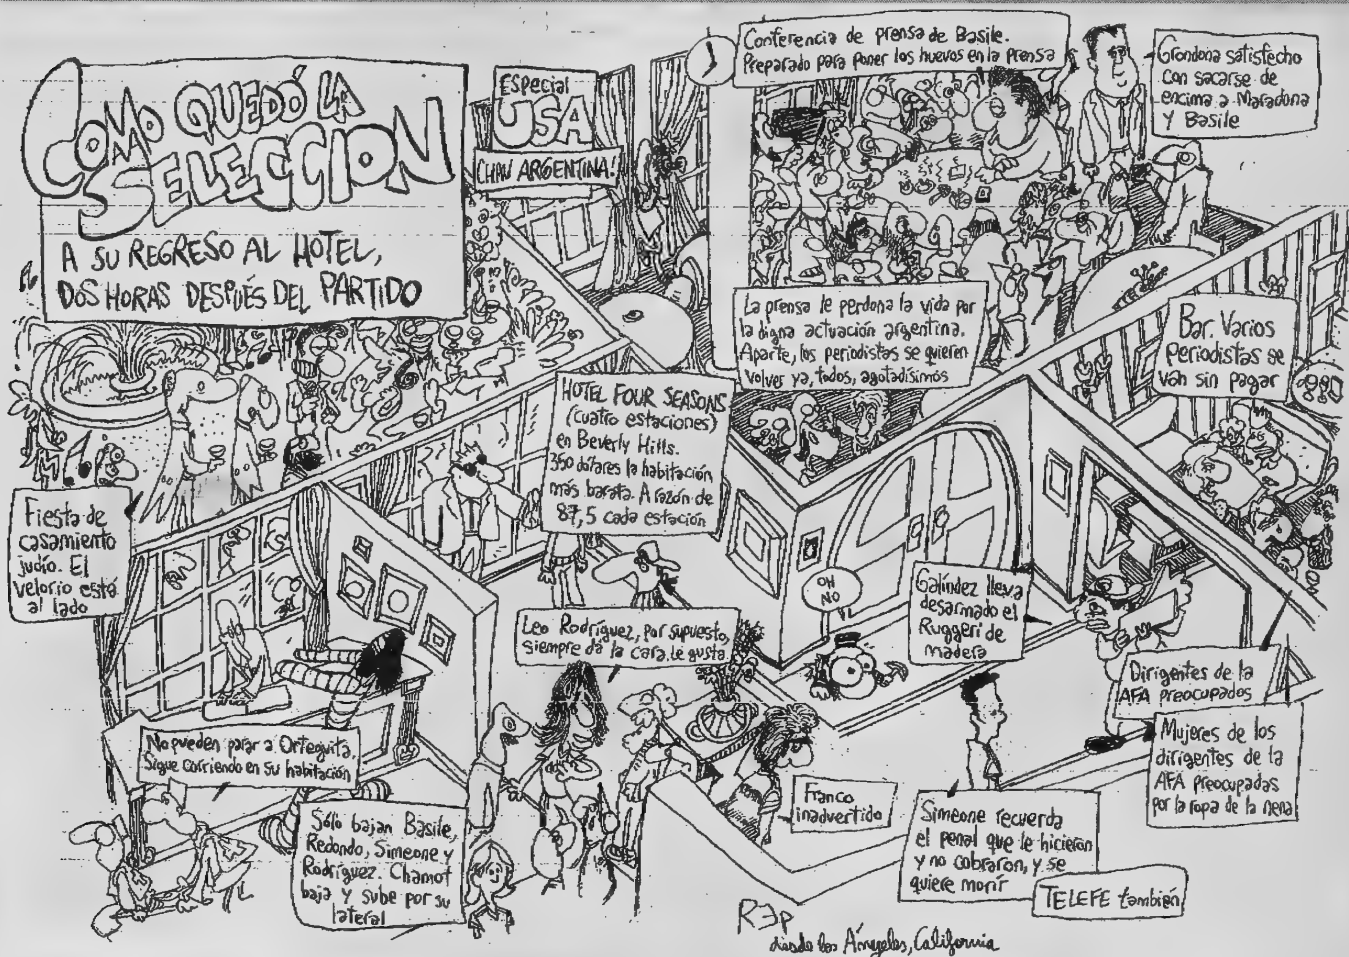 COMO QUEDÓ LA
SELECCION
A SU REGRESO AL HOTEL,
DOS HORAS DESPUÉS DEL PARTIDO
Especial
USA
CHAU ARGENTINA!
Conferencia de prensa de Basile.
Preparado para poner los huevos en la prensa
Grondona satisfecho
con sacarse de
encima a Maradona
y Basile
La prensa le perdona la vida por
la digna actuación argentina.
Aparte, los periodistas se quieren
volver ya, todos, agotadísimos
Bar. Varios
Periodistas se
van sin pagar
HOTEL FOUR SEASONS
(cuatro estaciones)
en Beverly Hills.
350 dólares la habitación
más barata. A razón de
87,5 cada estación
Fiesta de
casamiento
judío. El
velorio está
al lado
OH
NO
Galíndez lleva
desarmado el
Ruggeri de
madera
Leo Rodríguez, por supuesto,
siempre da la cara. Le gusta
Dirigentes de la
AFA preocupados
Mujeres de los
dirigentes de la
AFA preocupadas
por la ropa de la nena
No pueden parar a Orteguita,
Sigue corriendo en su habitación
Sólo bajan Basile,
Redondo, Simeone y
Rodríguez. Chamot
baja y sube por su
lateral
Franco
inadvertido
Simeone recuerda
el penal que le hicieron
y no cobraron, y se
quiere morir
TELEFE también
REP
desde los Ángeles, California